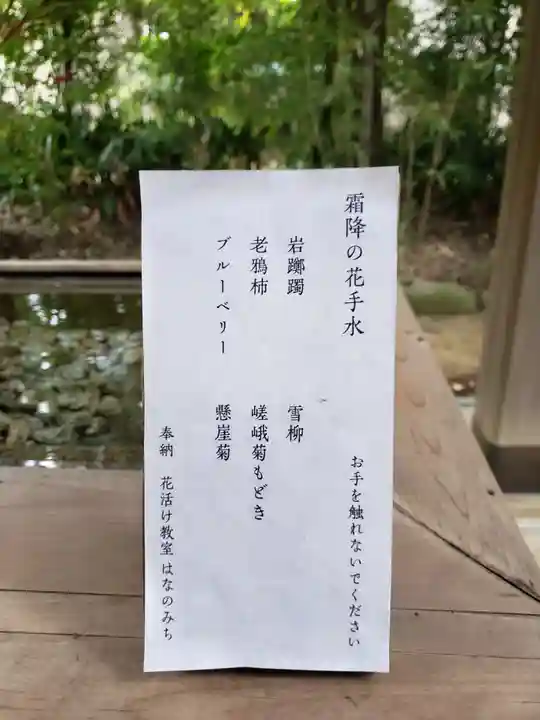 霜降の花手水
お手を触れないでください
岩躑躅　雪柳
老鴉柿　嵯峨菊もどき
ブルーベリー　懸崖菊
奉納　花活け教室 はなのみち